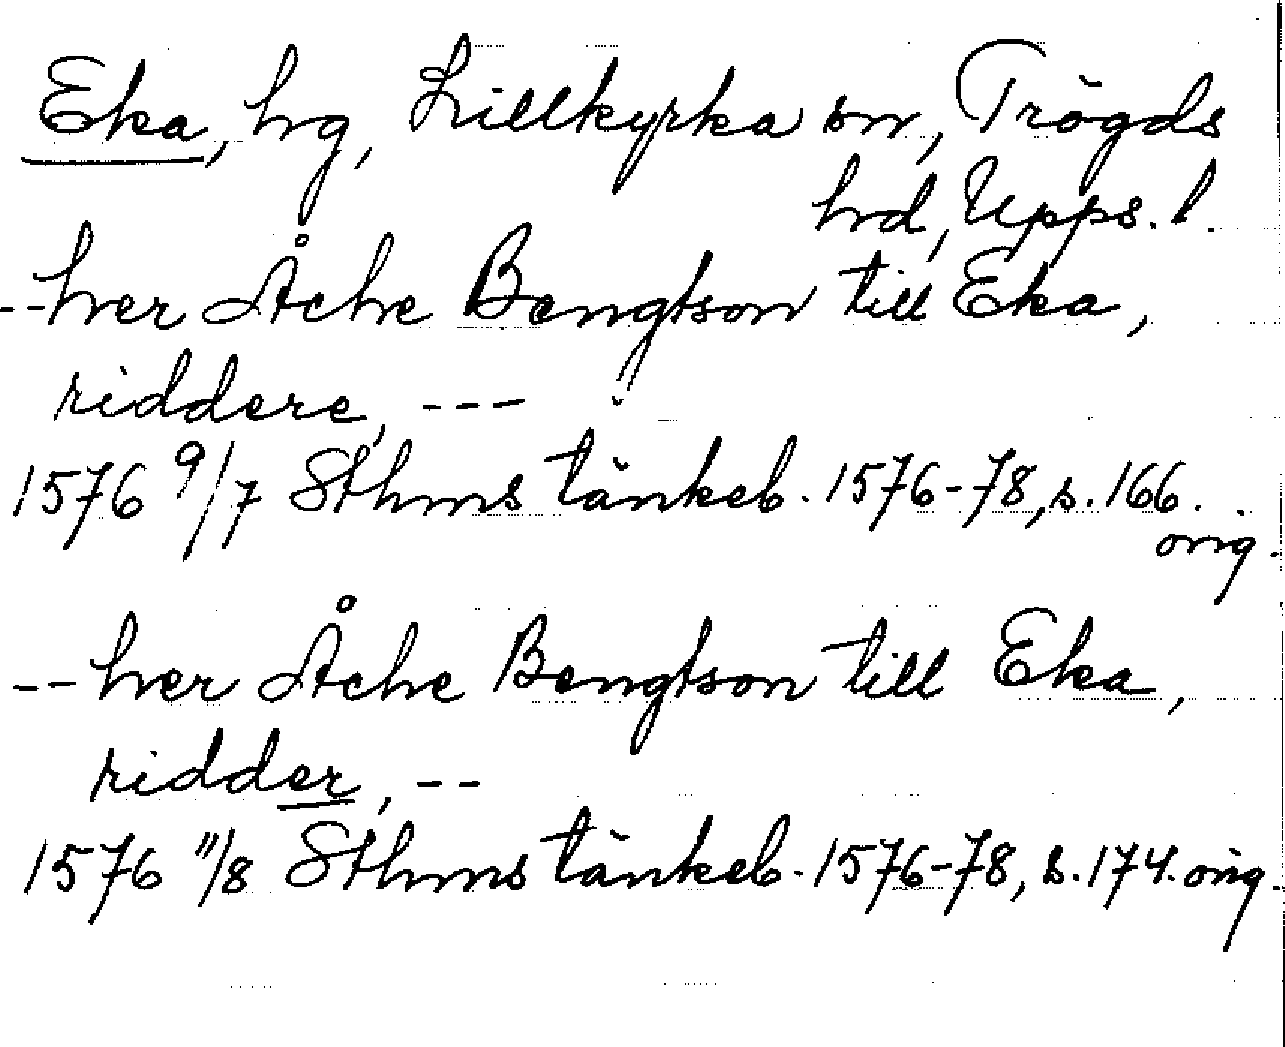 Eka, hg, Lillkyrka sn, Trögds
hd, Upps. l.
--her Åche Bengtson till Eka,
riddere, ---
1576 9/7 Sthms tänkeb. 1576-78, s. 166.
orig.
--her Åche Bengtson till Eka,
ridder, --
1576 11/8 Sthms tänkeb. 1576-78, s. 174. orig.